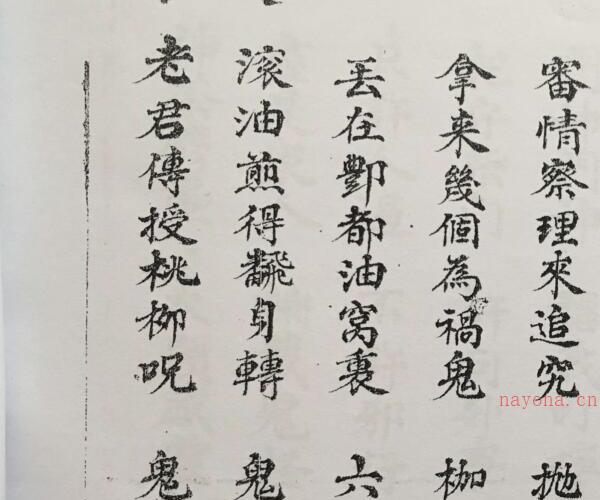 審情察理來追究 抛
拿来幾個為禍鬼 枷
丟在酆都油窩裏 六
滚油煎得飜身轉 鬼
老君傳授桃柳呪 鬼
nayona.cn